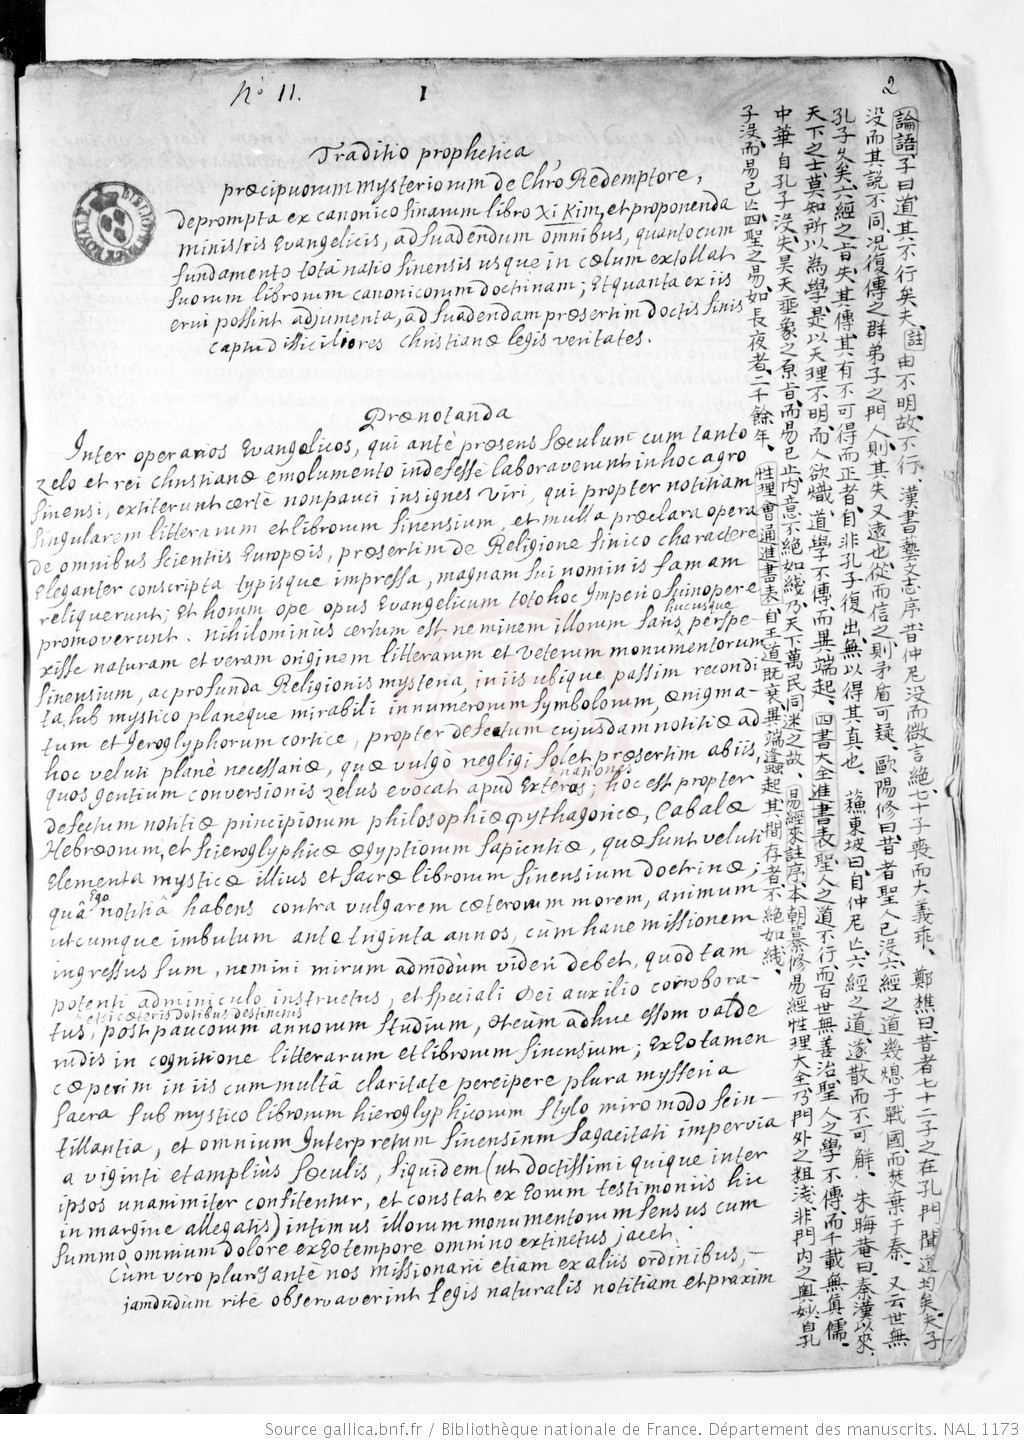 No 11.
1
2
Traditio prophetica
præcipuorum mysteriorum de Chro Redemptore,
deprompta ex canonico sinarum libro Xi Kim, et proponenda
ministris Evangelicis, ad suadendum omnibus, quantocum
fundamento tota natio sinensis usque in cœlum extollat
suorum librorum canonicorum doctrinam; Et quanta ex iis
erui possint adjumenta, ad suadendam præsertim doctis sinis
captu difficiliores Christianæ legis veritates.
Prænotanda
Inter operarios Evangelicos, qui antè præsens sæculum cum tanto
zelo et rei christianæ emolumento indefesse laboraverunt in hoc agro
sinensi, extiterunt certè non pauci insignes viri, qui propter notitiam
singularem litterarum et librorum sinensium, et multa præclara opera
de omnibus scientiis Europæis, præsertim de Religione sinico charactere
eleganter conscripta typisque impressa, magnam sui nominis famam
reliquerunt; Et horum ope opus Evangelicum toto hoc Imperio sinopere
promoverunt. nihilominus certum est neminem illorum satis hucusque perspe-
xisse naturam et veram originem litterarum et veterum monumentorum
sinensium, ac profunda Religionis mysteria, in iis ubique passim recondi
ta, sub mystico planeque mirabili innumerorum symbolorum, ænigma-
tum et Jeroglyphorum cortice, propter defectum cujusdam notitiæ ad
hoc veluti planè necessariæ, quæ vulgò negligi solet præsertim ab iis,
quos gentium conversionis zelus evocat apud Exteras nationes; hoc est propter
defectum notitiæ principiorum philosophiæ pythagoricæ, Cabalæ
Hebræorum, et hieroglyphicæ ægyptiorum sapientiæ, quæ sunt veluti
Elementa mysticæ illius et sacræ librorum sinensium doctrinæ;
quâ Ego notitiâ habens contra vulgarem cæterorum morem, animum
utcumque imbutum ante triginta annos, cùm hanc missionem
ingressus sum, nemini mirum admodùm videri debet, quod tam
potenti adminiculo instructus, et speciali Dei auxilio corrobora-
etsi cæteris dotibus destinenis
tus, post paucorum annorum studium, et cùm adhuc essem valde
rudis in cognitione litterarum et librorum sinensium; Ex Eo tamen
cæperim in iis cum multâ claritate percipere plura mysteria
sacra sub mystico librorum hieroglyphicorum stylo miro modo scin-
tillantia, et omnium Interpretum sinensium sagacitati impervia
a viginti et ampliùs sæculis, siquidem (ut doctissimi quique inter
ipsos unanimiter confitentur, et constat ex Eorum testimoniis hic
in margine allegatis) intimus illorum monumentorum sensus cum
summo omnium dolore ex Eo tempore omnino extinctus jacet.
Cùm vero plures antè nos missionarii etiam ex aliis ordinibus,
jamdudùm ritè observaverint legis naturalis notitiam et praxim
論語、子曰道其不行矣夫、註由不明、故不行、漢書藝文志序、昔仲尼没而微言絶、七十子喪而大義乖、鄭樵曰、昔者七十二子之在孔門聞道均矣、夫子
没而其説不同、况復傳之群弟子之門人、則其失又遠也、從而信之、則矛盾可疑、歐陽修曰、昔者聖人已没、六經之道幾熄于戰國、而焚棄于秦、又云世無
孔子久矣、六經之旨失其傳、其有不可得而正者、自非孔子復出、無以得其真也、蘓東坡曰、自仲尼亡、六經之道遂散而不可解、朱晦菴曰、秦漢以來、
天下之士莫知所以為學、是以天理不明、而人欲熾、道學不傳、而異端起、四書大全進書表、聖人之道不行、而百世無善治、聖人之學不傳、而千載無真儒、
中華自孔子没、失昊天垂象之原旨、而易已止、内意不絶如綫、乃天下萬民同迷之故、易經來註序、本朝纂修易經性理大全、乃門外之粗淺、非門内之奥妙、自孔
子没、而易已亡、四聖之易如長夜者、二千餘年、性理會通進書表、自王道既衰、異端蠭起、其間存者、不絶如綫、
BIBLIOTHECÆ REGIÆ
Source gallica.bnf.fr / Bibliothèque nationale de France. Département des manuscrits. NAL 1173